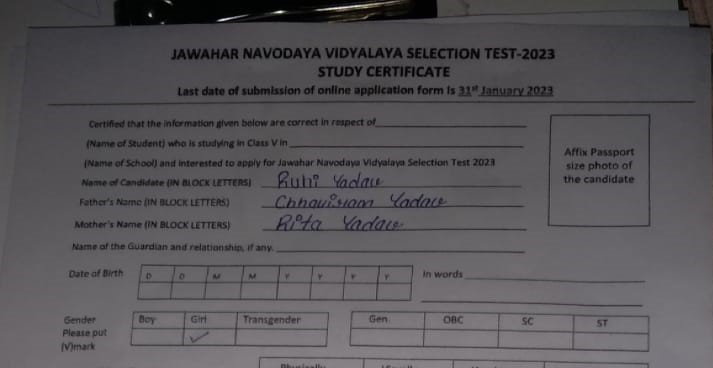 JAWAHAR NAVODAYA VIDYALAYA SELECTION TEST-2023
STUDY CERTIFICATE
Last date of submission of online application form is 31st January 2023
Certified that the information given below are correct in respect of
(Name of Student) who is studying in Class V in
(Name of School) and interested to apply for Jawahar Navodaya Vidyalaya Selection Test 2023
Affix Passport
size photo of
the candidate
Name of Candidate (IN BLOCK LETTERS) Ruhi Yadav
Father's Name (IN BLOCK LETTERS) Chhaviram Yadav
Mother's Name (IN BLOCK LETTERS) Rita Yadav
Name of the Guardian and relationship, if any.
Date of Birth D D M M Y Y Y Y In words
Gender Boy Girl Transgender Gen. OBC SC ST
Please put ✓
(V)mark
Physically